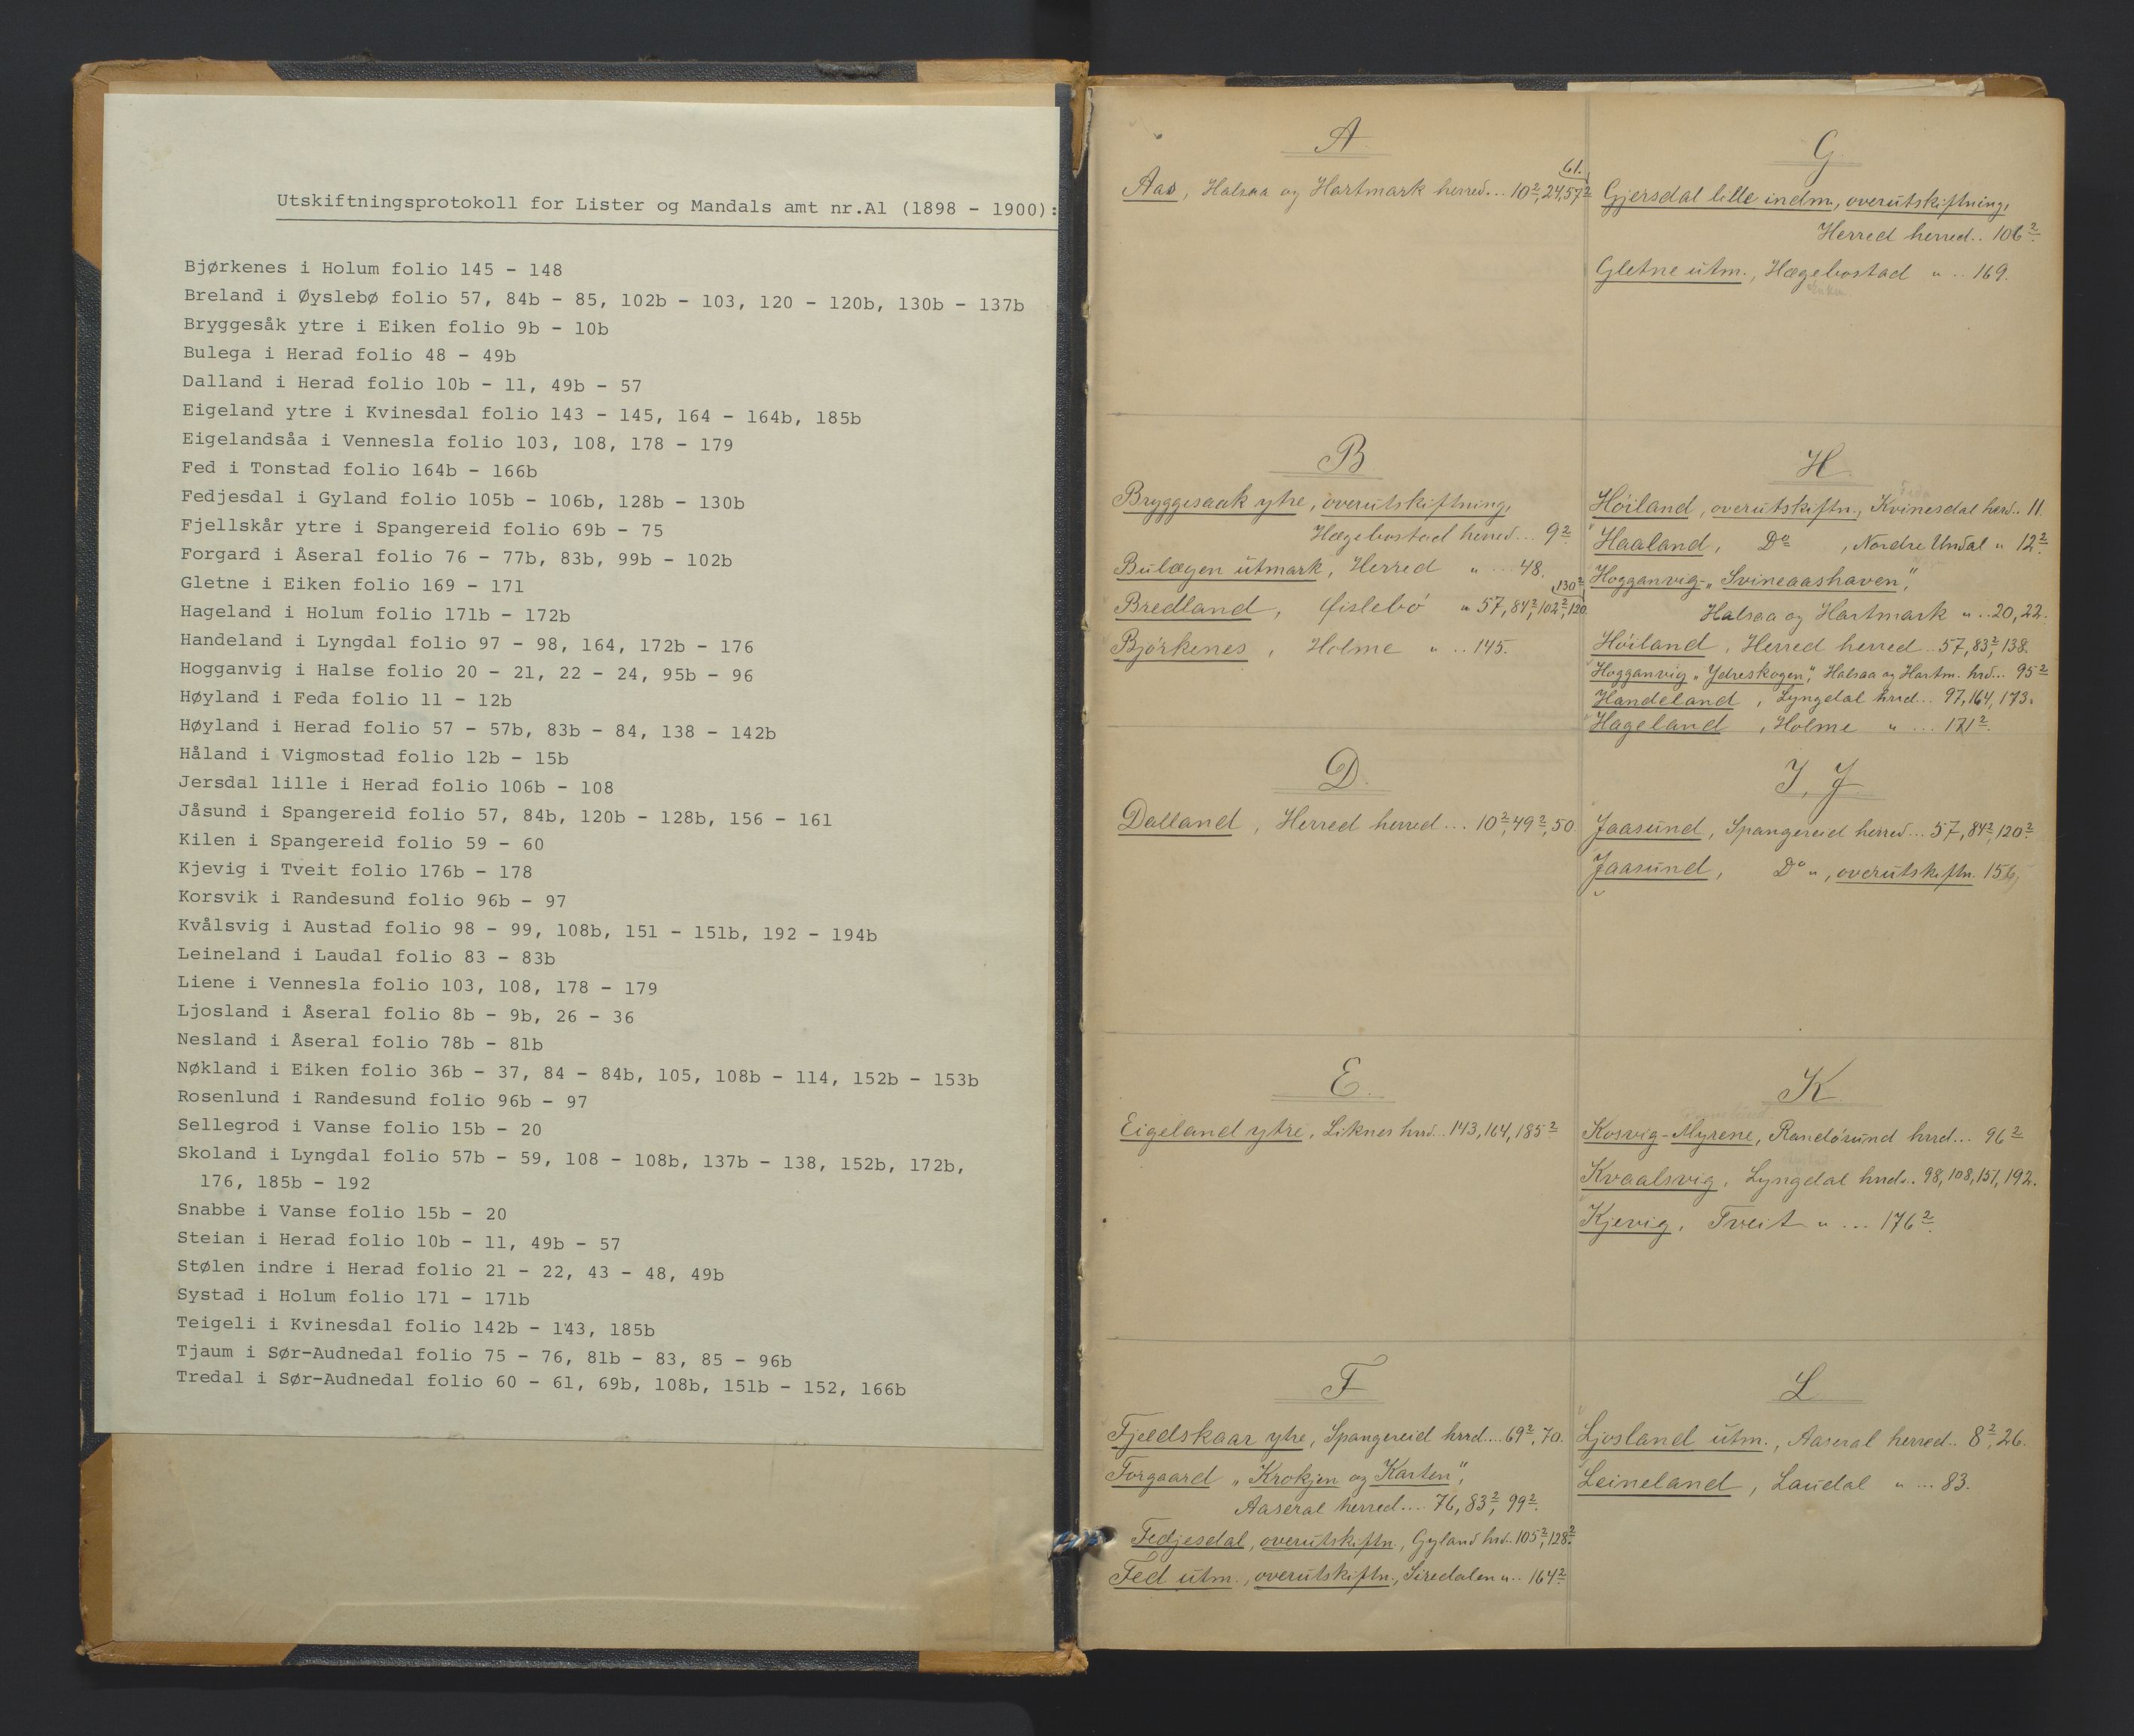 Utskiftningsprotokoll for Lister og Mandals amt nr.A1 (1898 - 1900):
Bjørkenes i Holum folio 145 - 148
Breland i Øyslebø folio 57, 84b - 85, 102b - 103, 120 - 120b, 130b - 137b
Bryggesåk ytre i Eiken folio 9b - 10b
Bulega i Herad folio 48 - 49b
Dalland i Herad folio 10b - 11, 49b - 57
Eigeland ytre i Kvinesdal folio 143 - 145, 164 - 164b, 185b
Eigelandsåa i Vennesla folio 103, 108, 178 - 179
Fed i Tonstad folio 164b - 166b
Fedjesdal i Gyland folio 105b - 106b, 128b - 130b
Fjellskår ytre i Spangereid folio 69b - 75
Forgard i Åseral folio 76 - 77b, 83b, 99b - 102b
Gletne i Eiken folio 169 - 171
Hageland i Holum folio 171b - 172b
Handeland i Lyngdal folio 97 - 98, 164, 172b - 176
Hogganvig i Halse folio 20 - 21, 22 - 24, 95b - 96
Høyland i Feda folio 11 - 12b
Høyland i Herad folio 57 - 57b, 83b - 84, 138 - 142b
Håland i Vigmostad folio 12b - 15b
Jersdal lille i Herad folio 106b - 108
Jåsund i Spangereid folio 57, 84b, 120b - 128b, 156 - 161
Kilen i Spangereid folio 59 - 60
Kjevig i Tveit folio 176b - 178
Korsvik i Randesund folio 96b - 97
Kvålsvig i Austad folio 98 - 99, 108b, 151 - 151b, 192 - 194b
Leineland i Laudal folio 83 - 83b
Liene i Vennesla folio 103, 108, 178 - 179
Ljosland i Åseral folio 8b - 9b, 26 - 36
Nesland i Åseral folio 78b - 81b
Nøkland i Eiken folio 36b - 37, 84 - 84b, 105, 108b - 114, 152b - 153b
Rosenlund i Randesund folio 96b - 97
Sellegrod i Vanse folio 15b - 20
Skoland i Lyngdal folio 57b - 59, 108 - 108b, 137b - 138, 152b, 172b,
176, 185b - 192
Snabbe i Vanse folio 15b - 20
Steian i Herad folio 10b - 11, 49b - 57
Stølen indre i Herad folio 21 - 22, 43 - 48, 49b
Systad i Holum folio 171 - 171b
Teigeli i Kvinesdal folio 142b - 143, 185b
Tjaum i Sør-Audnedal folio 75 - 76, 81b - 83, 85 - 96b
Tredal i Sør-Audnedal folio 60 - 61, 69b, 108b, 151b - 152, 166b
A.
61.
Aas, Halsaa og Hartmark herred... 10², 24, 57²
B.
Bryggesaak ytre, overutskiftning,
Hægebostad herred... 9².
Bulægen utmark, Herred " ... 48.
, 130²
Bredland, Øislebö " 57, 84², 102², 120
Björkenes, Holme " .. 145.
D.
Dalland, Herred herred... 10², 49², 50.
E.
Eigeland ytre, Liknes hrrd.. 143, 164, 185²
F
Fjeldskaar ytre, Spangereid hrrd.... 69², 70.
Forgaard "Krokjen og Karten",
Aaseral herred.... 76, 83², 99².
Fedjesdal, overutskiftn., Gyland hrd.. 105², 128².
Fed utm., overutskiftn., Siredalen " .. 164².
G.
Gjersdal lille indm., overutskiftning,
Herred herred.. 106².
Gletne utm., Hægebostad " .. 169.
Eiken.
H.
Feda
Höiland, overutskiftn., Kvinesdal herd.. 11.
Haaland, Do , Nordre Undal " 12².
Hogganvig- "Svineaashaven",
Halsaa og Hartmark " .. 20, 22.
Höiland, Herred herred.. 57, 83², 138.
Hogganvig "Ydreskogen", Halsaa og Hartm. hrd... 95²
Handeland, Lyngdal hrrd... 97, 164, 173.
Hageland, Holme " ... 171².
I, J.
Jaasund, Spangereid herred... 57, 84², 120².
Jaasund, Do ", overutskiftn. 156,
K.
Kosvig-Myrene, Randösund hrrd... 96²
Kvaalsvig, Lyngdal hrrd... 98, 108, 151, 192.
Kjevig, Tveit " ... 176².
L
Ljosland utm., Aaseral herred.. 8², 26.
Leineland, Laudal " ... 83.